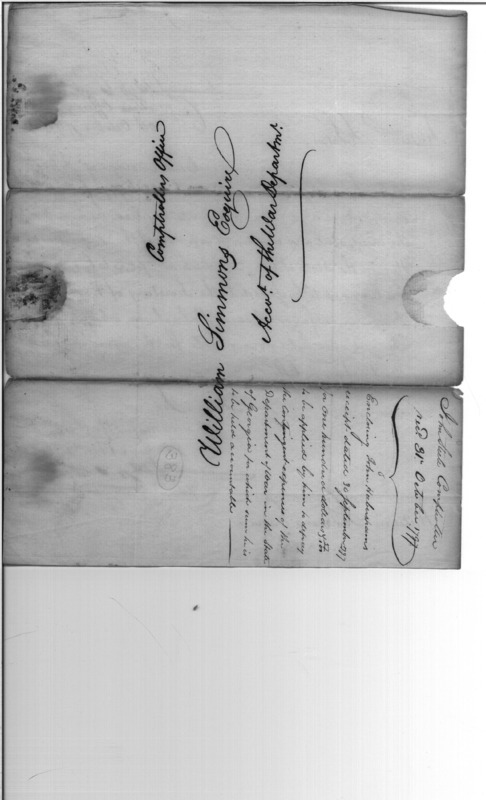 Comptrollers Office
William Simmons Esquire
Accot. of the War Departmt.
John Steele Comptroller
recd 31st October 1797
Enclosing John Habershams
receipt dated 30 September 1797
for one hundred dollars
to be applied by him to defray
the contingent expenses of the
Department of war in the State
of Georgia for which sum he is
to be held accountable